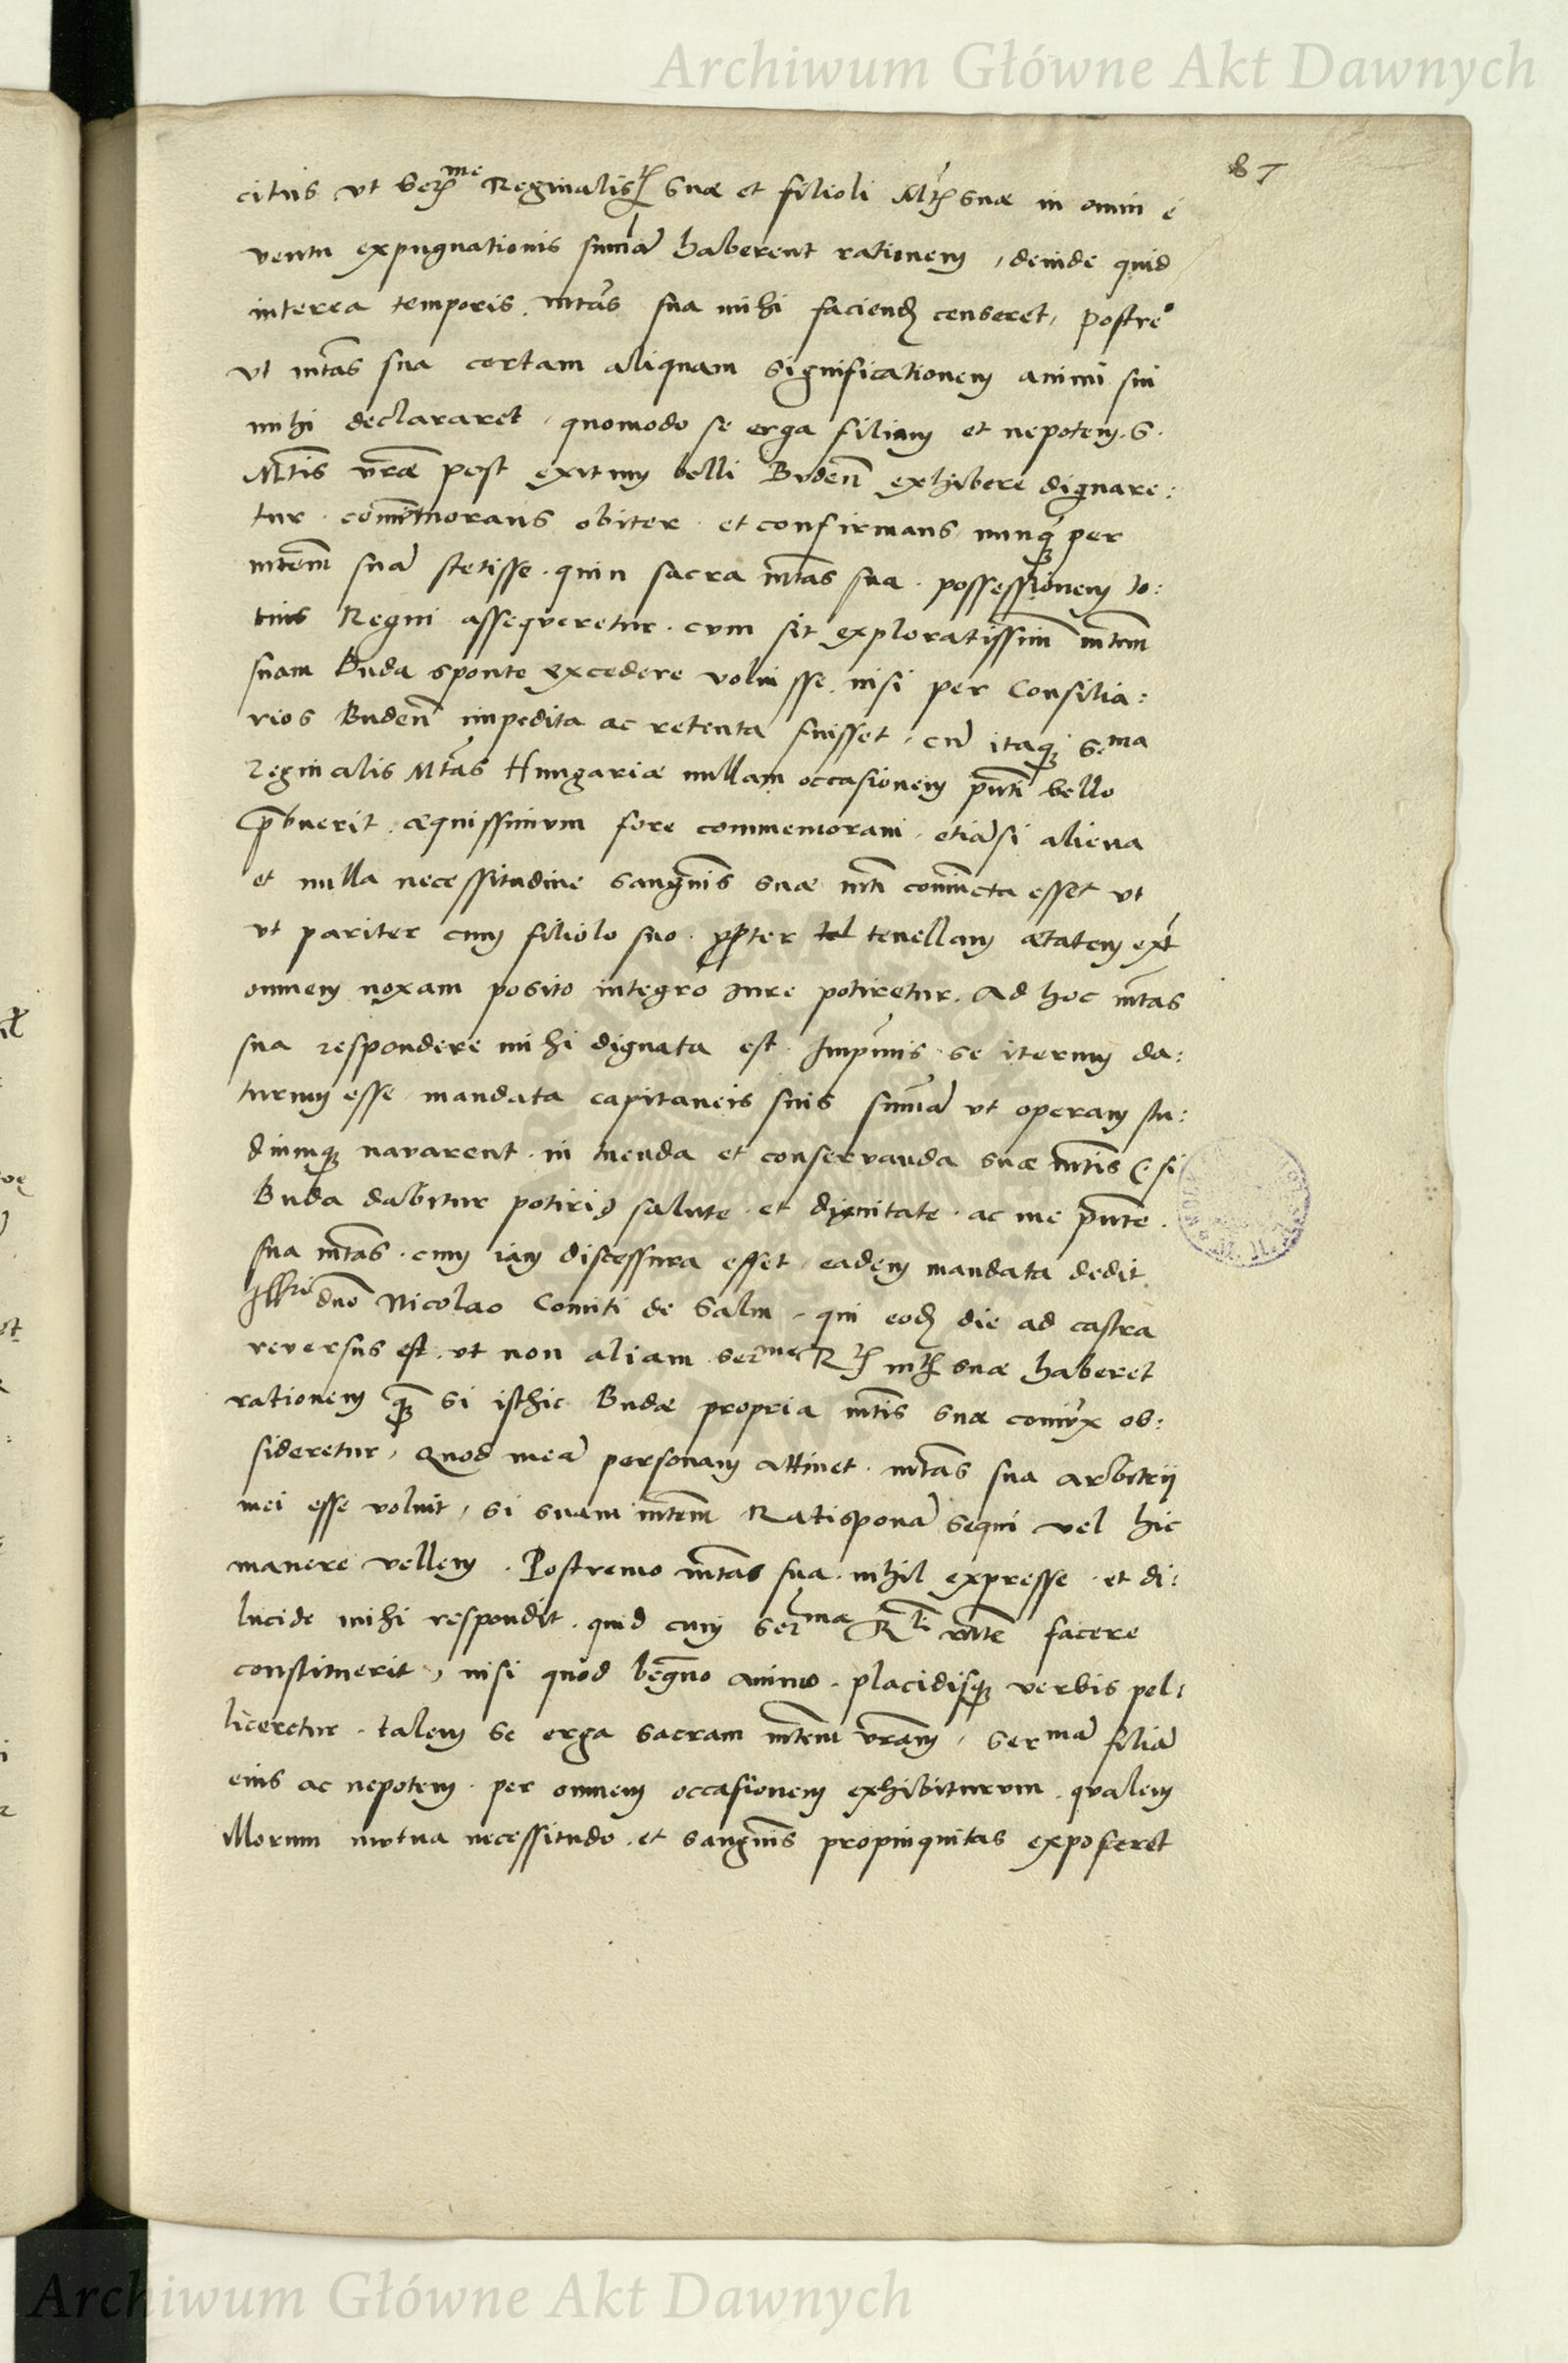 Archiwum Główne Akt Dawnych
87
citius ut Ser^me Reginalis suæ et filioli Mtis suæ in omni e
ventu expugnationis sum̃ā haberent rationem, deinde quid
interea temporis mtas sua mihi faciend censeret, postre°
ut mtas sua certam aliquam significationem animi sui
mihi declararet, quomodo se erga filiam et nepotem S.
Mtis vræ post exitum belli Buden̄ exhibere dignare:
tur. com̄emorans obiter et confirmans nunq̃ per
mtem suā stetisse quin sacra mtas sua possessionem to:
tius Regni assequeretur. cum sit exploratissim̄ mtem
suam Buda sponte excedere voluisse, nisi per Consilia:
rios Buden̄ impedita ac retenta fuisset, cū itaq; S.ma
Reginalis Mtas Hungariæ nullam occasionem pn̄ti bello
p̄buerit, æquissimum fore commemoravi, etiāsi aliena
et nulla necessitudine sangnis suæ mti coniuncta esset ut
ut pariter cum filiolo suo propter tel tenellam ætatem ext
omnem noxam posito integro iure potiretur. Ad hoc mtas
sua respondere mihi dignata est. Imprimis se iterum da:
turum esse mandata capitaneis suis sum̄ā ut operam stu:
diumq; navarent in tuenda et conservanda suæ mtis (si
Buda dabitur potiri) salute et dignitate. ac me pn̄te.
sua mtas, cum iam discessura esset, eadem mandata dedit
Ill^ri dno Nicolao Comiti de Salm, qui eod die ad castra
reversus est, ut non aliam Ser^mae R mtis suæ haberet
rationem q̃ si isthic Budæ propria mtis suæ coniux ob:
sideretur, Quod meā personam attinet, mtas sua arbitrij
mei esse voluit, si suam mtem Ratisponā sequi vel hic
manere vellem. Postremo mtas sua nihil expresse et di:
lucide mihi respondit, quid cum Ser^ma R^li mte facere
constituerit, nisi quod begno animo placidisq; verbis pol:
liceretur, talem se erga sacram mtem vram, Ser^mā filiā
eius ac nepotem per omnem occasionem exhibiturum, qualem
illorum mutua necessitudo et sangnis propinquitas exposceret
Archiwum Główne Akt Dawnych